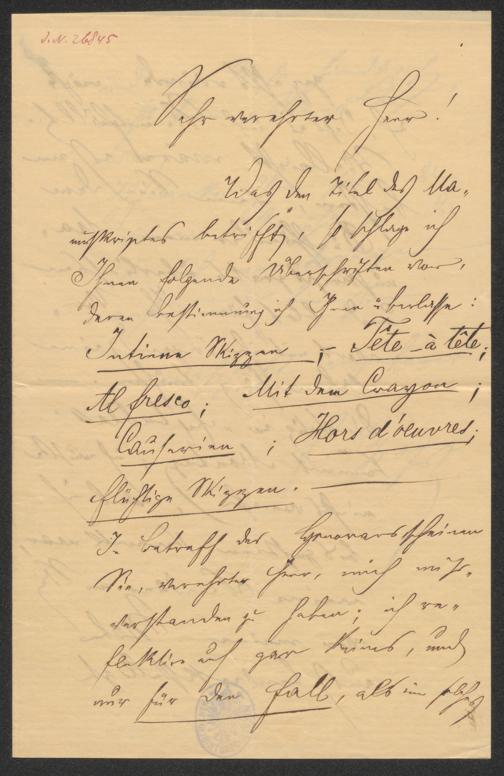 J. N. 26845
Sehr verehrter Herr!
Was den Titel des Ma-
nuskriptes betrifft, so schlage ich
Ihnen folgende Überschriften vor,
deren Bestimmung ich Ihnen überlasse:
Intime Skizzen; – Tête-à-tête;
Al fresco; Mit dem Crayon;
Causerien; Hors d'oeuvres;
flüchtige Skizzen. —
In Betreff des Honorars scheinen
Sie, verehrter Herr, mich miß-
verstanden zu haben; ich re-
flektire auf gar keines, und
nur für den Fall, als ein solches